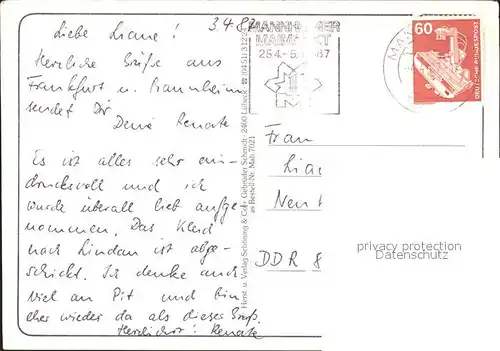 3.4.87
Liebe Liane!
Herzliche Grüße aus
Frankfurt u. Mannheim
sendet Dir
Deine Renate
Es ist alles sehr ein-
drucksvoll und ich
wurde überall lieb aufge-
nommen. Das Kleid
nach Lindau ist abge-
schickt. Ich denke auch
viel an Pit und bin
eher wieder da als dieser Gruß.
Herzlichst! Renate
Herst. u. Verlag Schöning & Co · Gebrüder Schmidt · 2400 Lübeck
Bestell-Nr. Mah 7021
MANNHEIMER
MAIMARKT
25.4.-5.5.1987
60
DEUTSCHE BUNDESPOST
Frau
Lia
Neu
DDR 8
privacy protection
Datenschutz